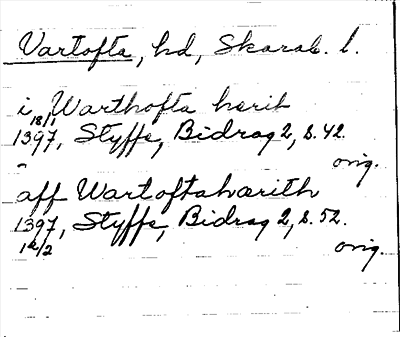 Vartofta, hd, Skarab. l.
i Warthofta herit
18/1
1397, Styffe, Bidrag 2, s. 42.
orig.
aff Wartoftahærith
1397, Styffe, Bidrag 2, s. 52.
12/2
orig.